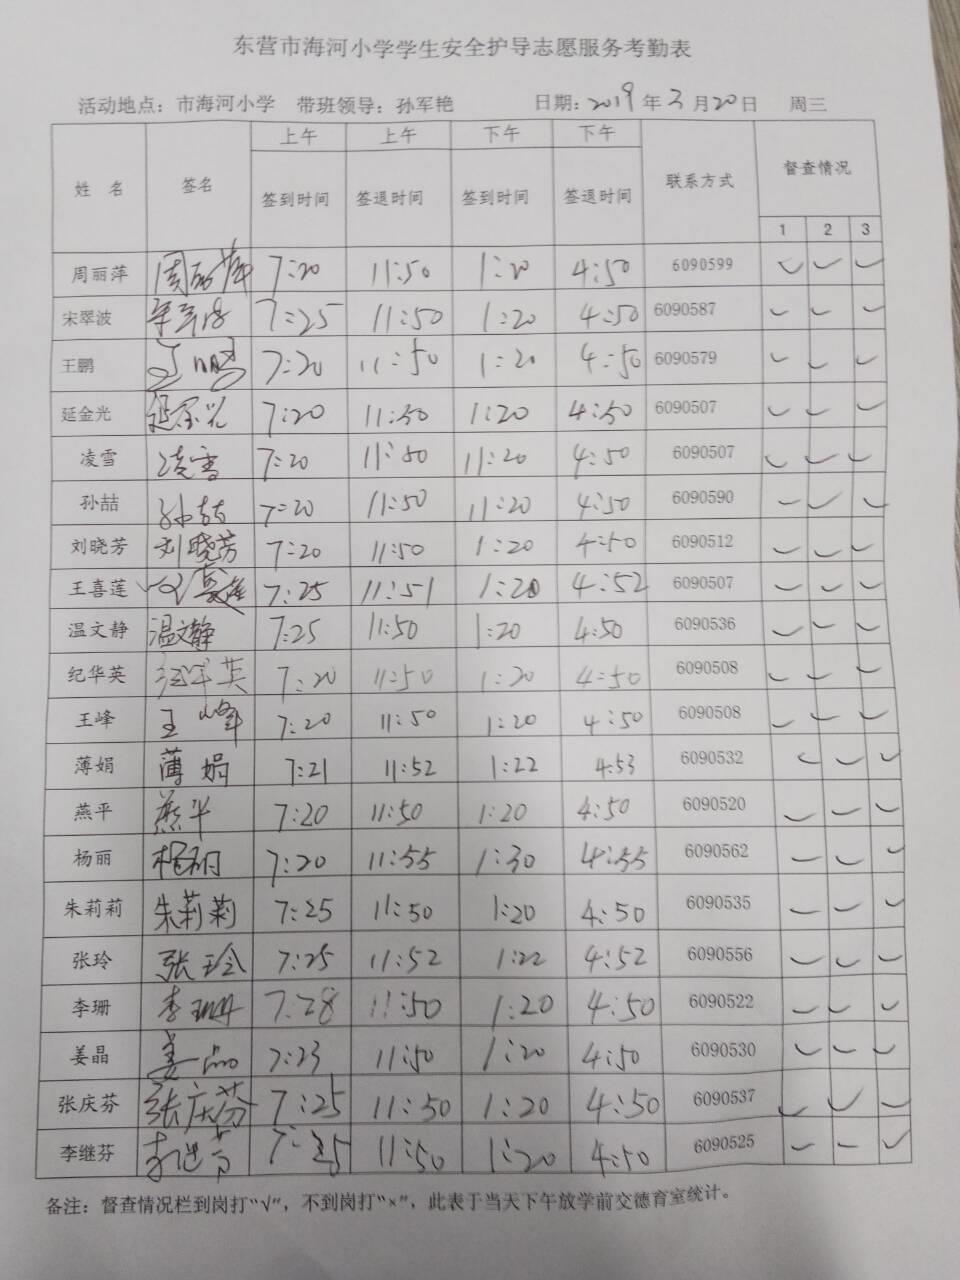 东营市海河小学学生安全护导志愿服务考勤表
活动地点：市海河小学 带班领导：孙军艳 日期：2019年3月20日 周三
姓名 签名 上午 上午 下午 下午 联系方式 督查情况
签到时间 签退时间 签到时间 签退时间
1 2 3
周丽萍 周丽萍 7:20 11:50 1:20 4:50 6090599 ✓ ✓ ✓
宋翠波 7:25 11:50 1:20 4:50 6090587 ✓ ✓ ✓
王鹏 王鹏 7:20 11:50 1:20 4:50 6090579 ✓ ✓ ✓
延金光 延金光 7:20 11:50 1:20 4:50 6090507 ✓ ✓ ✓
凌雪 凌雪 7:20 11:50 11:20 4:50 6090507 ✓ ✓ ✓
孙喆 孙喆 7:20 11:50 11:20 4:50 6090590 ✓ ✓ ✓
刘晓芳 刘晓芳 7:20 11:50 1:20 4:50 6090512 ✓ ✓ ✓
王喜莲 王喜莲 7:25 11:51 1:20 4:52 6090507 ✓ ✓ ✓
温文静 温文静 7:25 11:50 1:20 4:50 6090536 ✓ ✓ ✓
纪华英 纪华英 7:20 11:50 1:20 4:50 6090508 ✓ ✓ ✓
王峰 王峰 7:20 11:50 1:20 4:50 6090508 ✓ ✓ ✓
薄娟 薄娟 7:21 11:52 1:22 4:53 6090532 ✓ ✓ ✓
燕平 燕平 7:20 11:50 1:20 4:50 6090520 ✓ ✓ ✓
杨丽 杨丽 7:20 11:55 1:30 4:55 6090562 ✓ ✓ ✓
朱莉莉 朱莉莉 7:25 11:50 1:20 4:50 6090535 ✓ ✓ ✓
张玲 张玲 7:25 11:52 1:22 4:52 6090556 ✓ ✓ ✓
李珊 李珊 7:28 11:50 1:20 4:50 6090522 ✓ ✓ ✓
姜晶 姜晶 7:23 11:50 1:20 4:50 6090530 ✓ ✓ ✓
张庆芬 张庆芬 7:25 11:50 1:20 4:50 6090537 ✓ ✓ ✓
李继芬 7:25 11:50 1:20 4:50 6090525 ✓ ✓ ✓
备注：督查情况栏到岗打“√”，不到岗打“×”，此表于当天下午放学前交德育室统计。